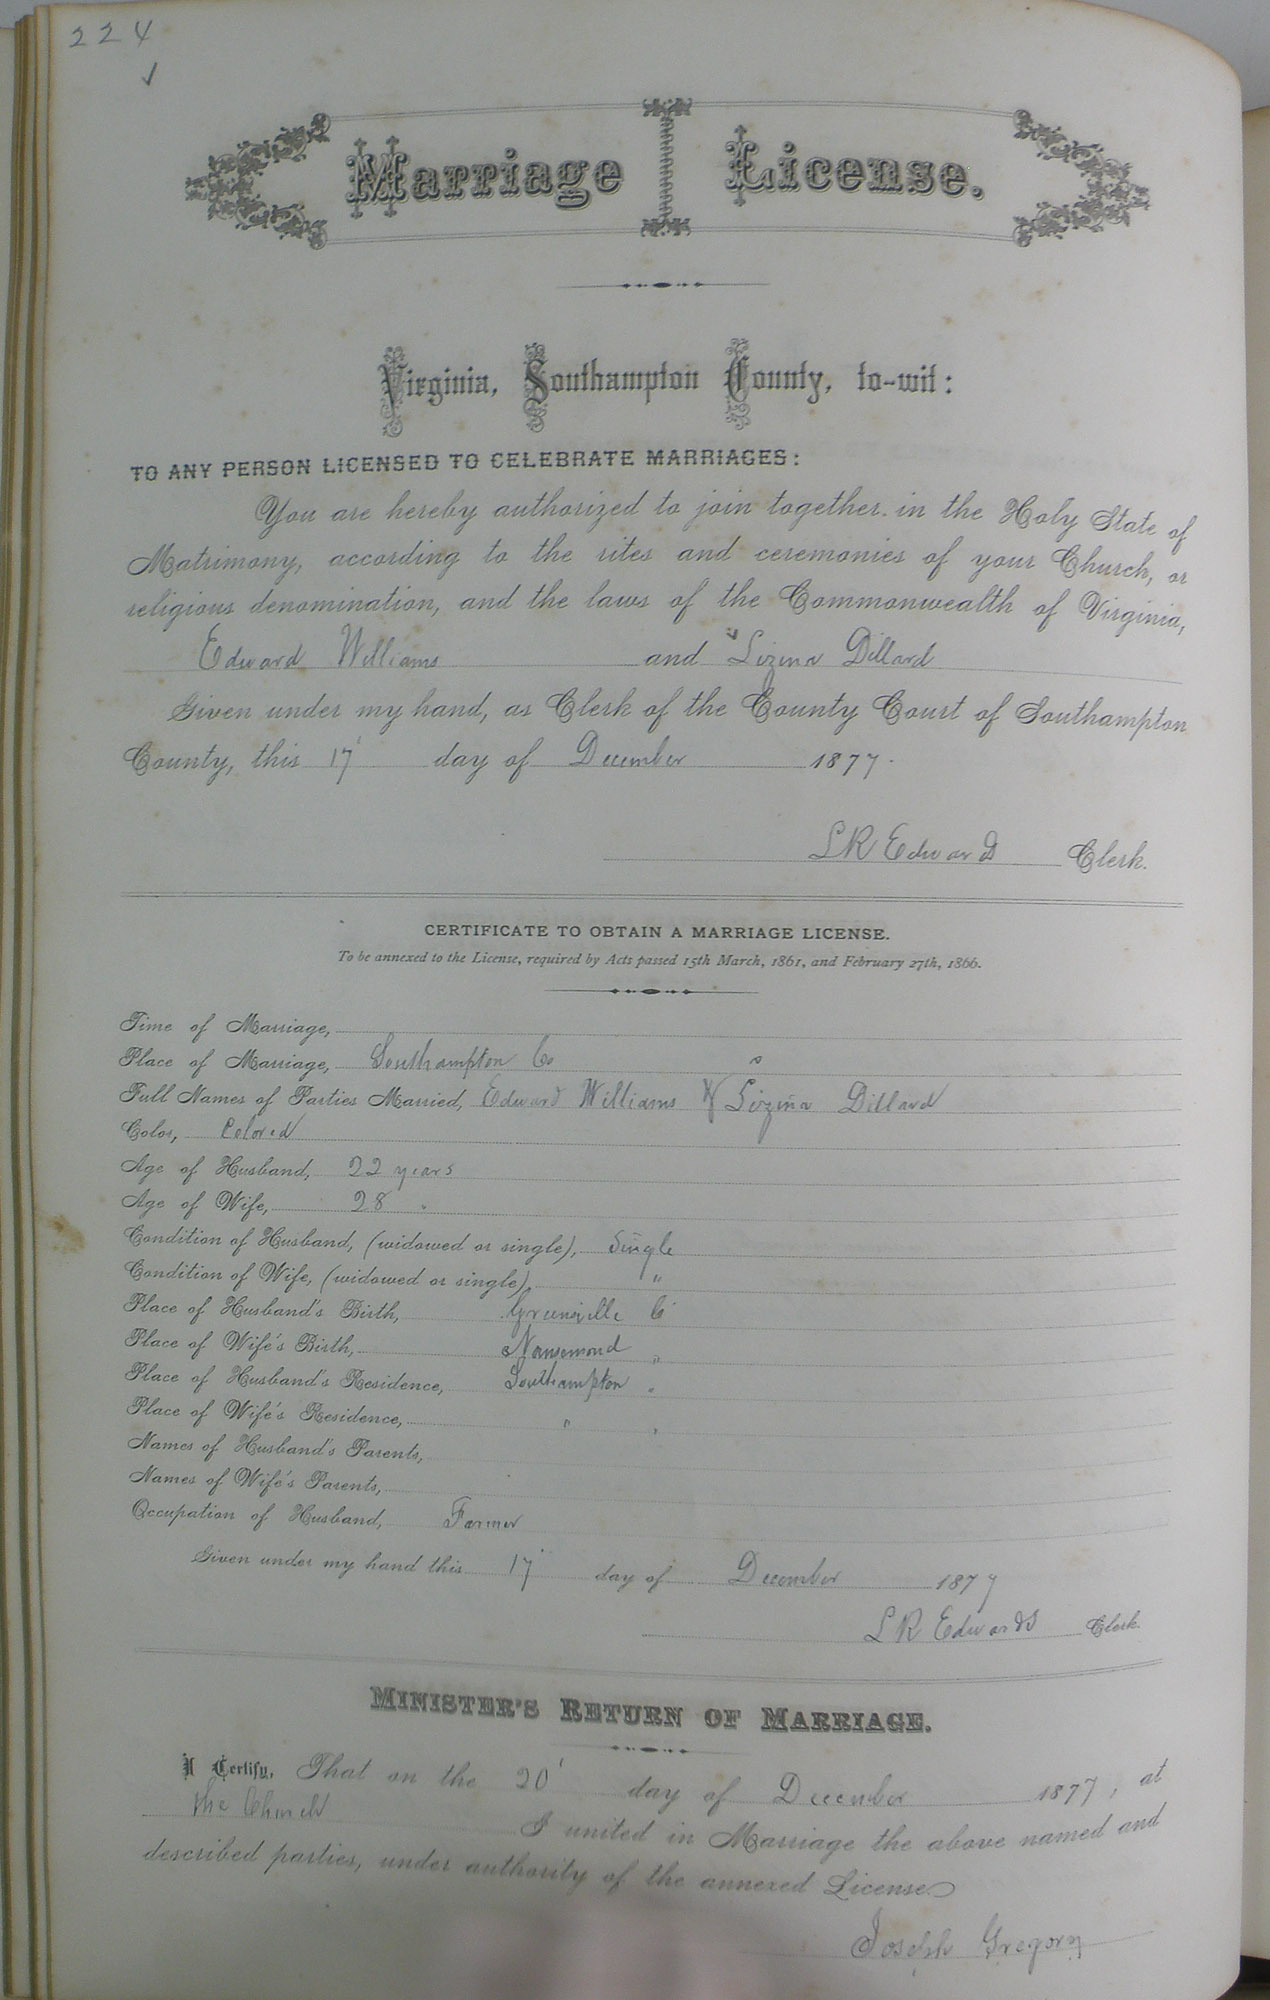 224
✓
Marriage License.
Virginia, Southampton County, to-wit:
TO ANY PERSON LICENSED TO CELEBRATE MARRIAGES:
You are hereby authorized to join together in the Holy State of
Matrimony, according to the rites and ceremonies of your Church, or
religious denomination, and the laws of the Commonwealth of Virginia,
Edward Williams and Lizina Dillard
Given under my hand, as Clerk of the County Court of Southampton
County, this 17' day of December 1877.
L R Edwards Clerk.
CERTIFICATE TO OBTAIN A MARRIAGE LICENSE.
To be annexed to the License, required by Acts passed 15th March, 1861, and February 27th, 1866.
Time of Marriage,
Place of Marriage, Southampton Co
Full Names of Parties Married, Edward Williams & Lizina Dillard
Color, Colored
Age of Husband, 22 years
Age of Wife, 28 "
Condition of Husband, (widowed or single), Single
Condition of Wife, (widowed or single), "
Place of Husband's Birth, Greensville Co
Place of Wife's Birth, Nansemond "
Place of Husband's Residence, Southampton "
Place of Wife's Residence, " "
Names of Husband's Parents,
Names of Wife's Parents,
Occupation of Husband, Farmer
Given under my hand this 17' day of December 1877
L R Edwards Clerk.
MINISTER'S RETURN OF MARRIAGE.
I Certify, That on the 20' day of December 1877, at
the Church I united in Marriage the above named and
described parties, under authority of the annexed License.
Joseph Gregory